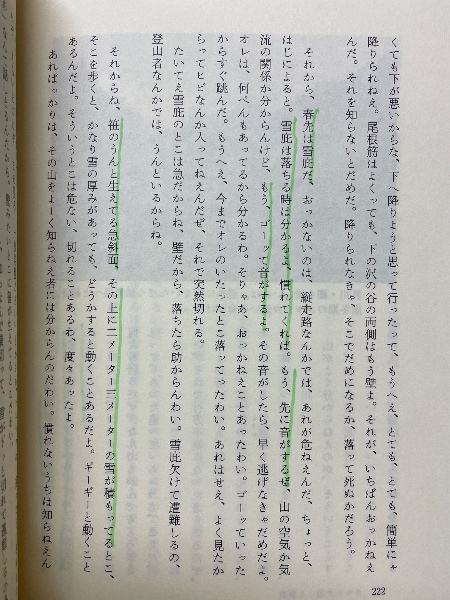 くても下が悪いからな、下へ降りようと思って行ったって、もうへえ、とても、とても、簡単にャ
降りられねえ。尾根筋はよくっても、下の沢の谷の両側はもう壁よ。それが、いちばんおっかねえ
んだ。それを知らないとだめだ。降りられなきゃ、そこでだめになるか、落って死ぬかだろう。
それから、春先は雪庇だ、おっかないのは、縦走路なんかでは、あれが危ねえんだ、ちょっと、
はじによると。雪庇は落ちる時は分かるよ、慣れてくれば。もう、先に音がするぜ、山の空気か気
流の関係か分からんけど、もう、ゴーッて音がするよ。その音がしたら、早く逃げなきゃだめだよ。
オレは、何べんもあってるから分かるわ。そりゃあ、おっかねえことあったわい。ゴーッていった
からすぐ跳んだ。もうへえ、今までオレのいたったとこ落ってったわい。あれはせえ、よく見たか
らってヒビなんか入ってねえんだぜ、それで突然切れる。
たいてえ雪庇のとこは急だからね、壁だから、落ったら助からんわい。雪庇欠けて遭難しるの、
登山者なんかでは、うんといるからね。
それからね、笹のうんと生えてる急斜面、その上に二メーター三メーターの雪が積もってるとこ、
そこを歩くと、かなり雪の厚みがあっても、どうかすると動くことあるだよ。ギーギーと動くこと
あるんだよ。そういうとこは危ない、切れることあるわ、度々あったよ。
あればっかりは、その山をよーく知らねえ者には分からんのだわい。慣れないうちは知らねえん
222